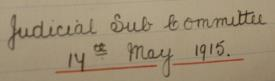 Judicial Sub Committee
14th May 1915.